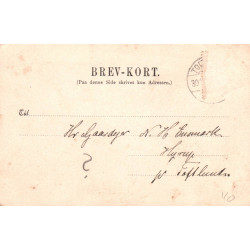 BREV-KORT.
(Paa denne Side skrives kun Adressen.)
Til
Hr Gaardejer N. H. Enemark
Hyrup
?
pr Toftlund